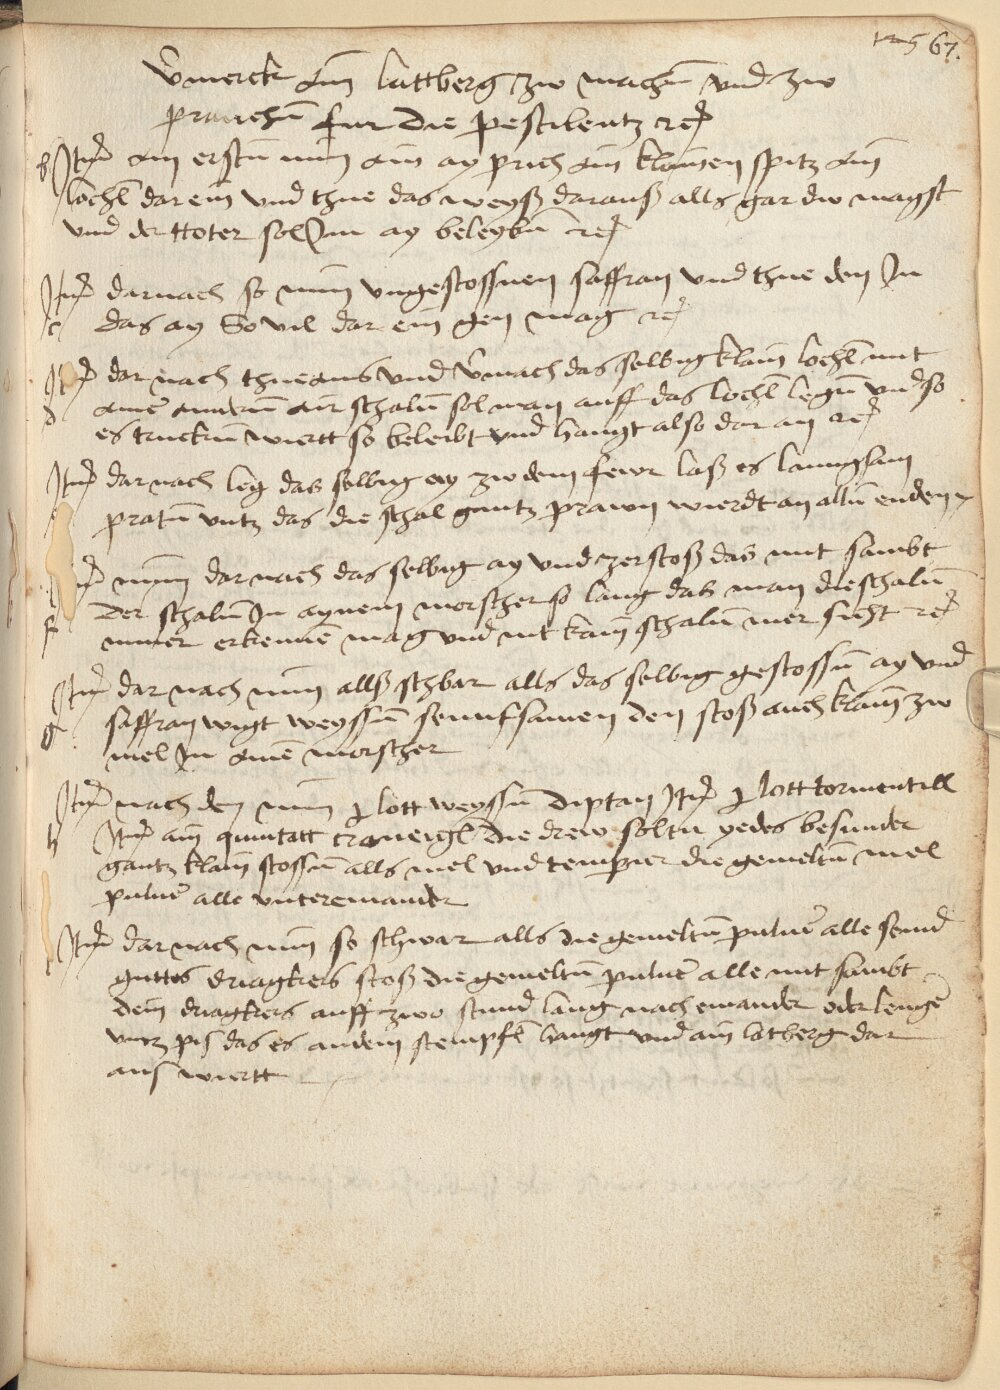 125 67.
Vermerck ain lattberg zw machen und zw
prauchen fur die pestilentz etc
b Item am ersten nim ain ay prich ain klainen spitz ain
lochl dar ein und thue das weyß darauß alls gar du magst
und der ttoter sol Im ay beleyben etc
Item darnach so nim ungestossnen saffran und thue den In
c das ay So vil dar ein gen mag etc
Item dar nach thue aus und vermach das selbig klain lochl mit
d ainer anndern air schallen sol man auff das lochl legen und so
es truckhen wiertt so beleibt und hangt also dar an etc
Item dar nach leg das selbig ay zw dem fewr laß es lanngsam
praten untz das die schal gantz prawn wierdt an allen enden
nim dar nach das selbig ay und zerstoß das mit sambt
f der schallen In aynem morscher so lang das man die schallen
nimer erkennen mag und nit kain schallen mer sicht etc
Item dar nach nim allß schbar alls das selbig gestossen ay und
g saffran wigt weyssen senifsamen den stoß auch klain zw
mel In ainem morscher
Item nach dem nim j lott weyssen diptan Item j lott tormentill
h Item ain quintatt craneigl die drew soltu yedes besunder
gantz klain stossen alls mel und tempier die gemelten mel
pulver alle untereinander
Item dar nach nim so schwar alls die gemelten pulver alle seind
guttes driagkers stoß die gemelten pulver alle mit sambt
dem driagkers auff zwo stund lang nach einander oder lenger
untz pis das es an dem stempfl hangt und ain latberg dar
aus wiertt